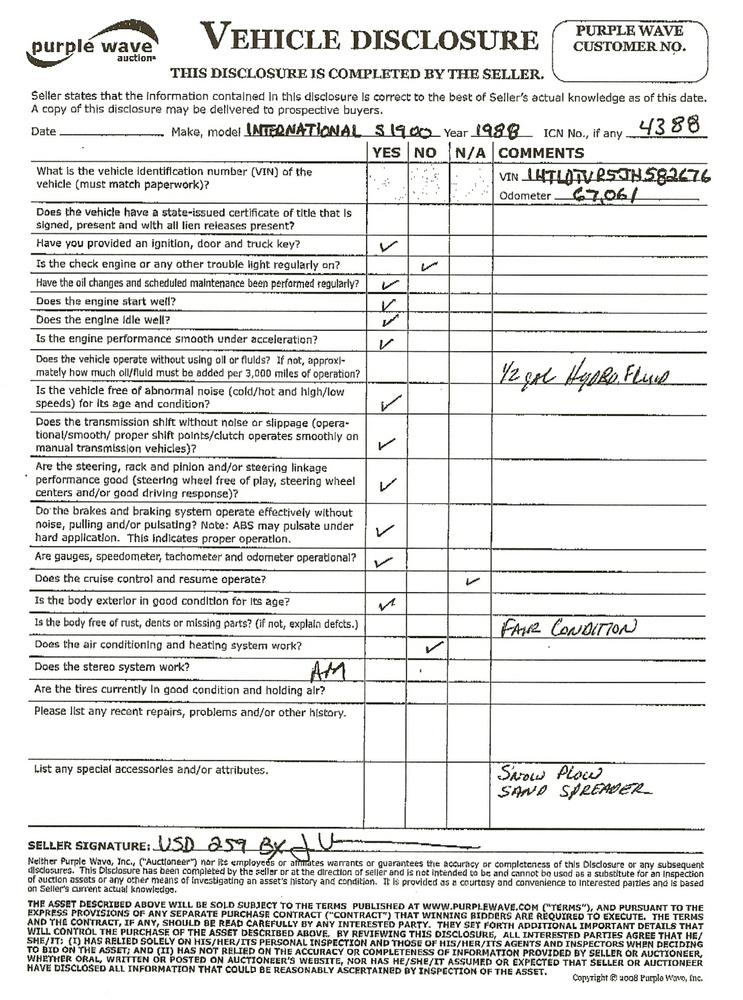 purple wave
auction®
VEHICLE DISCLOSURE
THIS DISCLOSURE IS COMPLETED BY THE SELLER.
PURPLE WAVE
CUSTOMER NO.
Seller states that the information contained in this disclosure is correct to the best of Seller's actual knowledge as of this date.
A copy of this disclosure may be delivered to prospective buyers.
Date Make, model INTERNATIONAL S1900 Year 1988 ICN No., if any 4388
YES NO N/A COMMENTS
What is the vehicle identification number (VIN) of the
vehicle (must match paperwork)?
VIN 1HTLDTVR5JH582676
Odometer 67,061
Does the vehicle have a state-issued certificate of title that is
signed, present and with all lien releases present?
Have you provided an ignition, door and truck key? ✓
Is the check engine or any other trouble light regularly on? ✓
Have the oil changes and scheduled maintenance been performed regularly? ✓
Does the engine start well? ✓
Does the engine idle well? ✓
Is the engine performance smooth under acceleration? ✓
Does the vehicle operate without using oil or fluids? If not, approxi-
mately how much oil/fluid must be added per 3,000 miles of operation?
1/2 gal Hydro. Fluid
Is the vehicle free of abnormal noise (cold/hot and high/low
speeds) for its age and condition? ✓
Does the transmission shift without noise or slippage (opera-
tional/smooth/ proper shift points/clutch operates smoothly on
manual transmission vehicles)? ✓
Are the steering, rack and pinion and/or steering linkage
performance good (steering wheel free of play, steering wheel
centers and/or good driving response)? ✓
Do the brakes and braking system operate effectively without
noise, pulling and/or pulsating? Note: ABS may pulsate under
hard application. This indicates proper operation. ✓
Are gauges, speedometer, tachometer and odometer operational? ✓
Does the cruise control and resume operate? ✓
Is the body exterior in good condition for its age? ✓
Is the body free of rust, dents or missing parts? (if not, explain defcts.) FAIR CONDITION
Does the air conditioning and heating system work? ✓
Does the stereo system work? AM
Are the tires currently in good condition and holding air?
Please list any recent repairs, problems and/or other history.
List any special accessories and/or attributes.
SNOW PLOW
SAND SPREADER
SELLER SIGNATURE: USD 259 By
Neither Purple Wave, Inc., ("Auctioneer") nor its employees or affiliates warrants or guarantees the accuracy or completeness of this Disclosure or any subsequent
disclosures. This Disclosure has been completed by the seller or at the direction of seller and is not intended to be and cannot be used as a substitute for an inspection
of auction assets or any other means of investigating an asset's history and condition. It is provided as a courtesy and convenience to interested parties and is based
on Seller's current actual knowledge.
THE ASSET DESCRIBED ABOVE WILL BE SOLD SUBJECT TO THE TERMS PUBLISHED AT WWW.PURPLEWAVE.COM ("TERMS"), AND PURSUANT TO THE
EXPRESS PROVISIONS OF ANY SEPARATE PURCHASE CONTRACT ("CONTRACT") THAT WINNING BIDDERS ARE REQUIRED TO EXECUTE. THE TERMS
AND THE CONTRACT, IF ANY, SHOULD BE READ CAREFULLY BY ANY INTERESTED PARTY. THEY SET FORTH ADDITIONAL IMPORTANT DETAILS THAT
WILL CONTROL THE PURCHASE OF THE ASSET DESCRIBED ABOVE. BY REVIEWING THIS DISCLOSURE, ALL INTERESTED PARTIES AGREE THAT HE/
SHE/IT: (I) HAS RELIED SOLELY ON HIS/HER/ITS PERSONAL INSPECTION AND THOSE OF HIS/HER/ITS AGENTS AND INSPECTORS WHEN DECIDING
TO BID ON THE ASSET; AND (II) HAS NOT RELIED ON THE ACCURACY OR COMPLETENESS OF INFORMATION PROVIDED BY SELLER OR AUCTIONEER,
WHETHER ORAL, WRITTEN OR POSTED ON AUCTIONEER'S WEBSITE, NOR HAS HE/SHE/IT ASSUMED OR EXPECTED THAT SELLER OR AUCTIONEER
HAVE DISCLOSED ALL INFORMATION THAT COULD BE REASONABLY ASCERTAINED BY INSPECTION OF THE ASSET.
Copyright © 2008 Purple Wave, Inc.